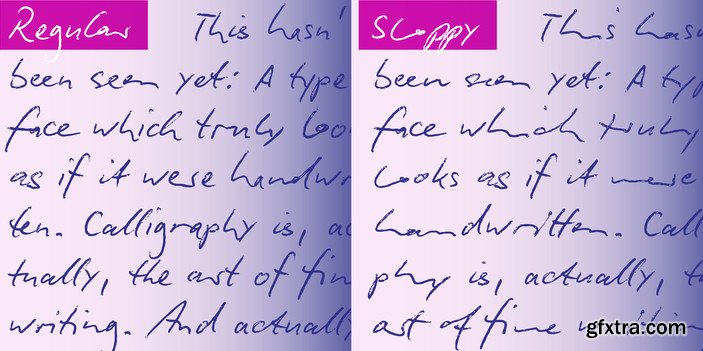 Regular
This hasn'
been seen yet: A type
face which truly loo
as if it were handwr
ten. Calligraphy is, ac
tually, the art of fin
writing. And actually
Sloppy
This hasn
been seen yet: A typ
face which truly
looks as if it were
handwritten. Call
phy is, actually, t
art of fine writtin
gfxtra.com